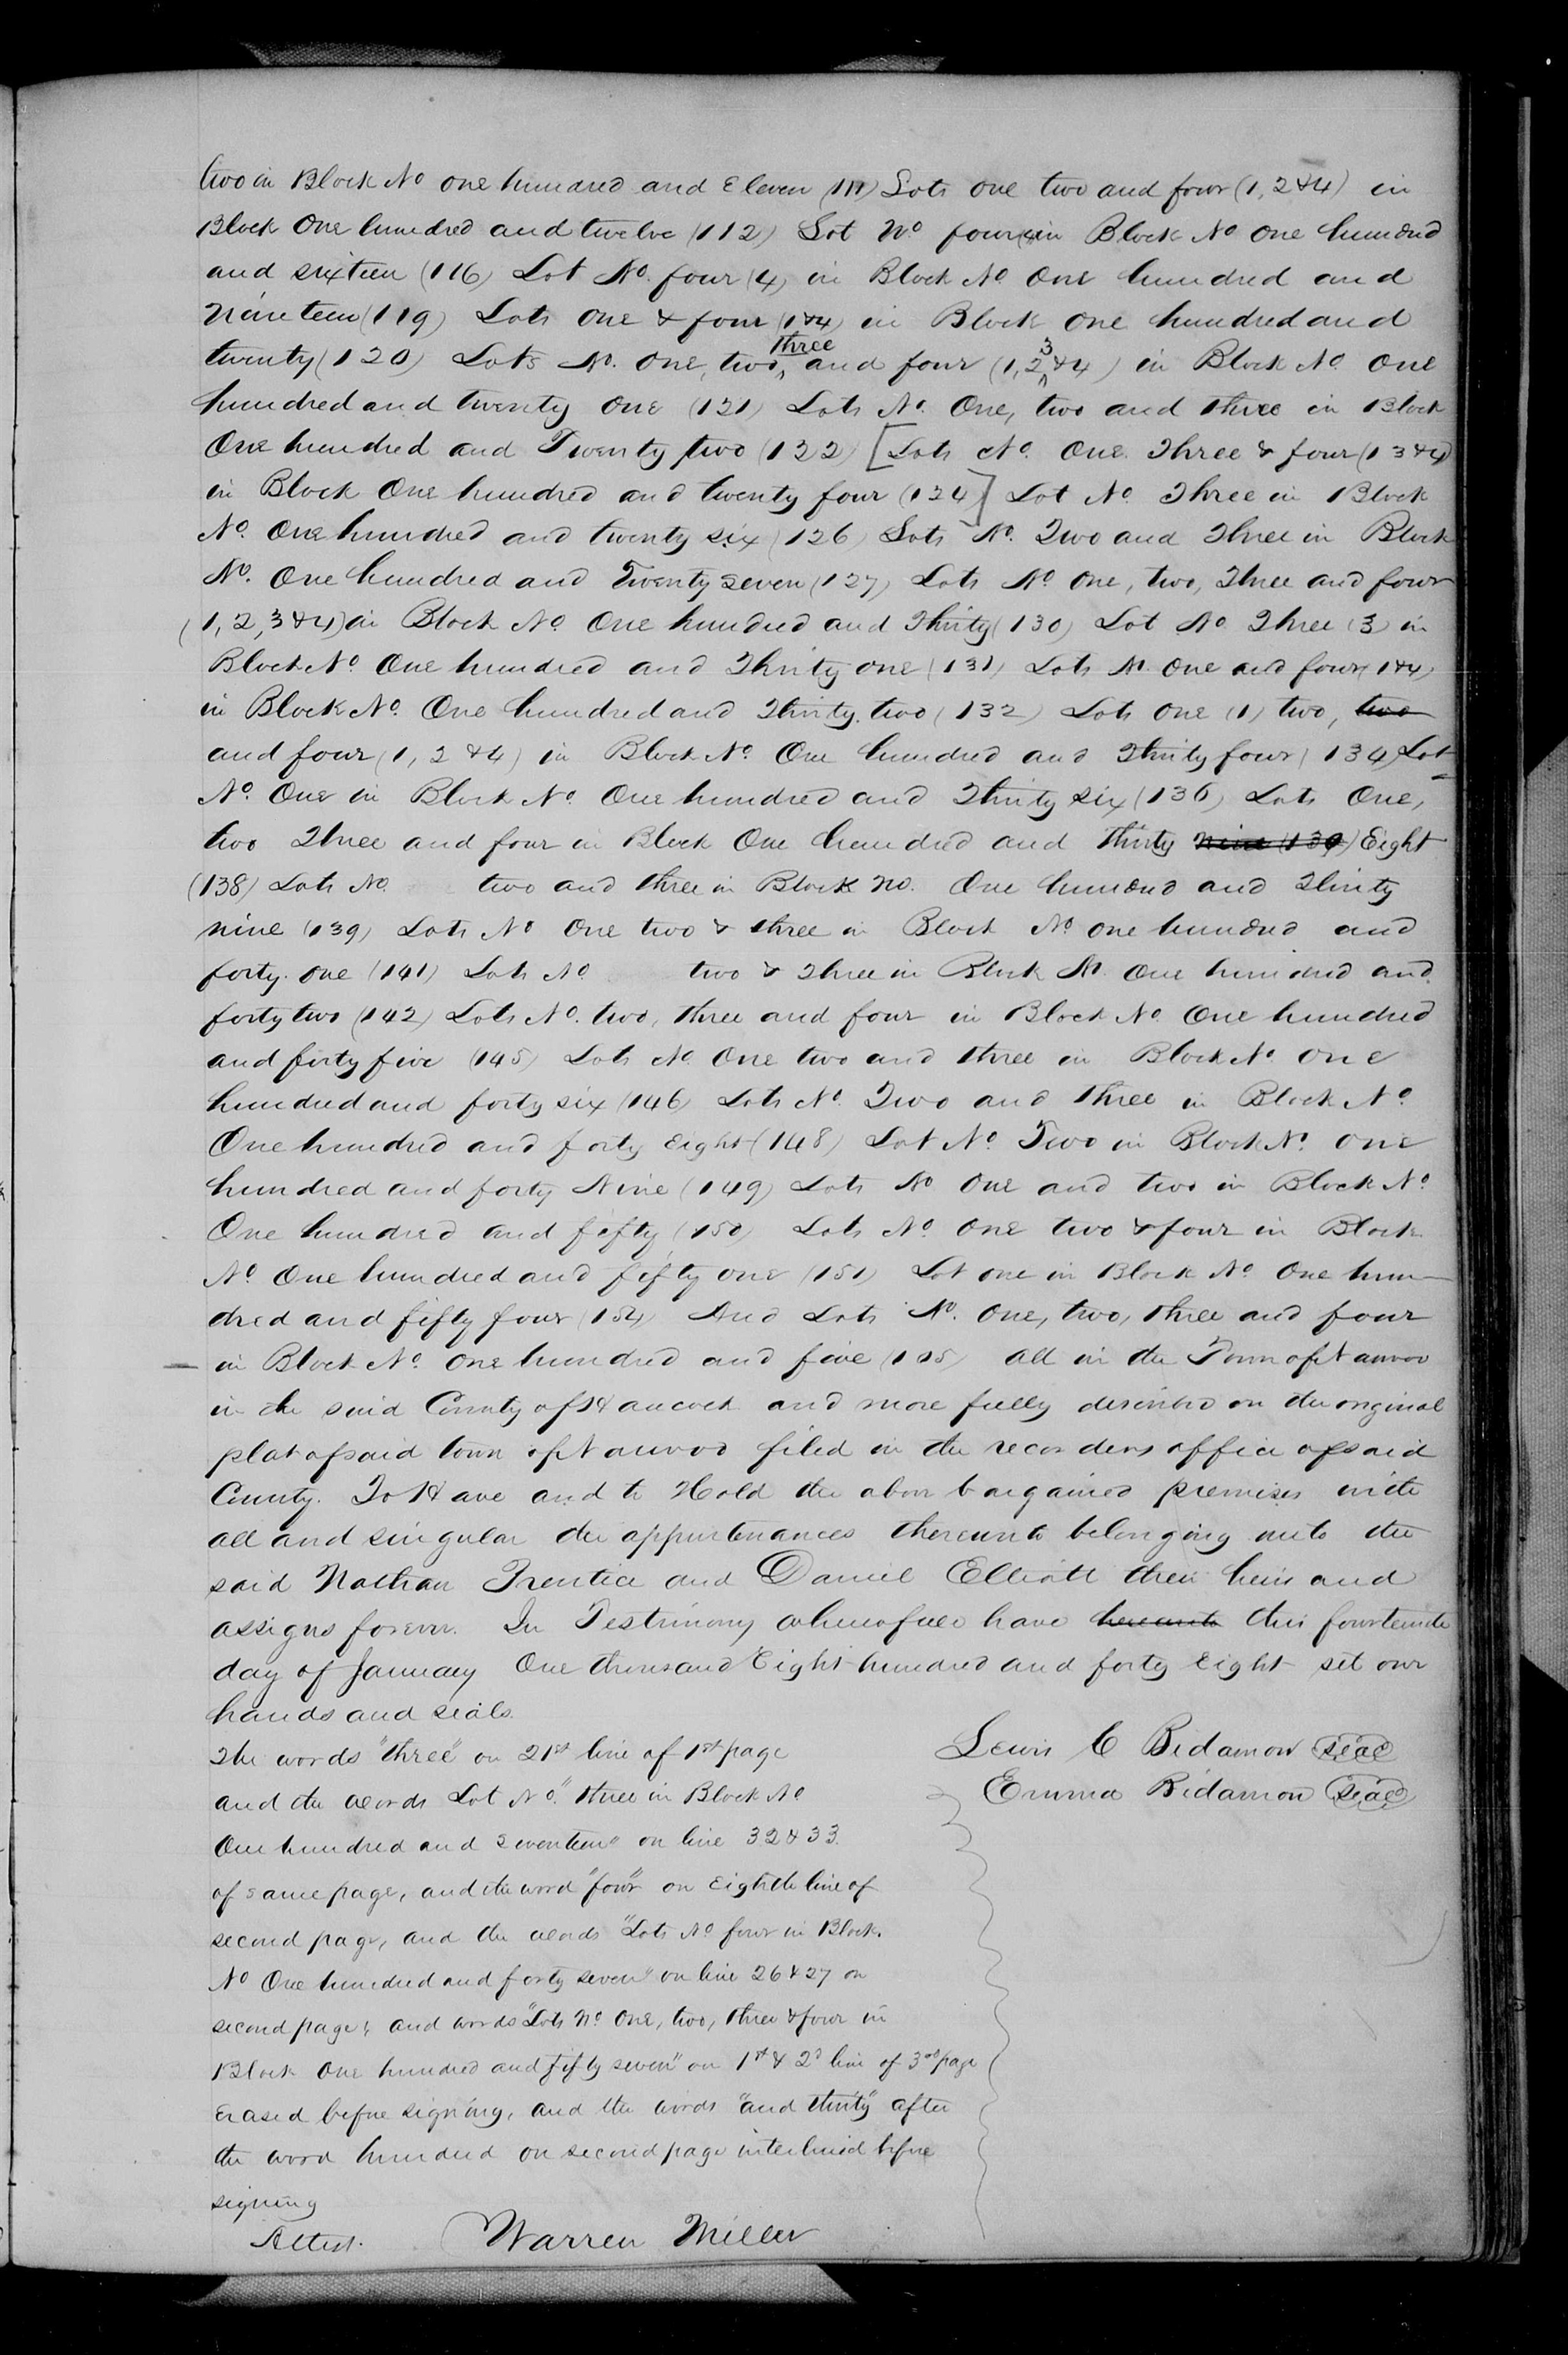 two in Block No one hundred and Eleven (111) Lots one two and four (1, 2 & 4) in
Block One hundred and twelve (112) Lot No four (4) in Block No One hundred
and sixteen (116) Lot No. four (4) in Block No One hundred and
Nineteen (119) Lots One & four (1 & 4) in Block One hundred and
twenty (120) Lots No. One, two, three and four (1, 2, 3 & 4) in Block No One
hundred and twenty One (121) Lots No. One, two and three in Block
One hundred and Twenty two (122) [Lots No. One. Three & four (1 3 & 4)
in Block One hundred and twenty four (124)] Lot No. Three in Block
No. One hundred and twenty six (126) Lots No. Two and Three in Block
No. One hundred and Twenty Seven (127) Lots No One, two, Three and four
(1, 2, 3 & 4) in Block No. One hundred and Thirty (130) Lot No. Three (3) in
Block No One hundred and Thirty one (131) Lots No One and four (1 & 4)
in Block No. One hundred and Thirty. two (132) Lots One (1) two, two
and four (1, 2 & 4) in Block No. One hundred and Thirty four (134) Lot
No. One in Block No. One hundred and Thirty six (136) Lots One,
two Three and four in Block One hundred and thirty nine (139) Eight
(138) Lots No. two and three in Block No. One hundred and Thirty
nine (139) Lots No One two & three in Block No one hundred and
forty. one (141) Lots No two & Three in Block No. One hundred and
forty two (142) Lots No. two, three and four in Block No. One hundred
and forty five (145) Lots No. One two and three in Block No One
hundred and forty six (146) Lots No. Two and three in Block No.
One hundred and forty Eight (148) Lot No. Two in Block No. One
hundred and forty Nine (149) Lots No One and two in Block No.
One hundred and fifty (150) Lots No. One two & four in Block
No. One hundred and fifty one (151) Lot one in Block No One hun-
dred and fifty four (154) And Lots No. One, two, three and four
in Block No. One hundred and five (105) All in the Town of Nauvoo
in the said County of Hancock and more fully described on the original
plat of said town of Nauvoo filed in the recorders office of said
County. To Have and to Hold the above bargained premises with
all and singular the appurtenances thereunto belonging unto the
said Nathan Prentice and Daniel Elliott their heirs and
assigns forever. In Testimony whereof we have hereunto this fourteenth
day of January One thousand Eight hundred and forty Eight set our
hands and seals.
The words "three" on 21st line of 1st page
and the words Lot No." three in Block No
One hundred and Seventeen" on line 32 & 33.
of same page, and the word "four" on Eighth line of
second page, and the words "Lots No four in Block.
No One hundred and forty seven" on line 26 & 27 on
second page, and words "Lots No. One, two, three & four in
Block One hundred and fifty seven" on 1st & 2d line of 3rd page
Erased before signing, and the words "and thirty" after
the word hundred on second page interlined before
signing
Lewis C Bidamon seal
Emma Bidamon seal
Attest. Warren Miller